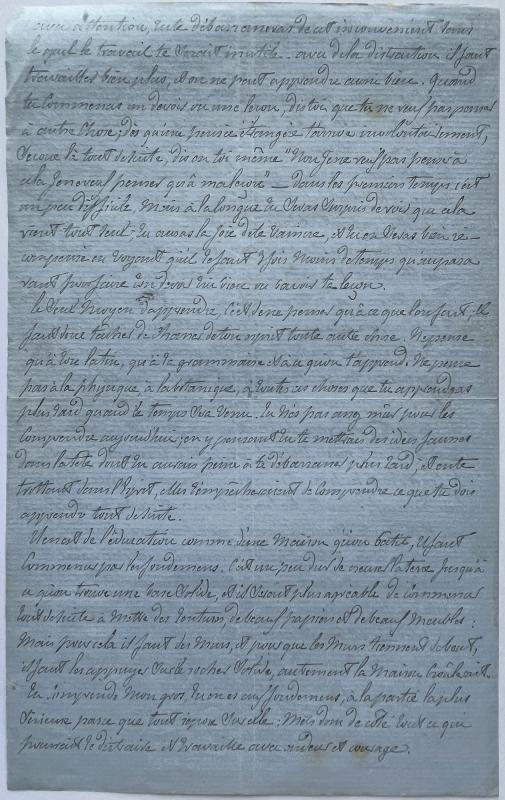 avec attention, tu te débarrasseras de cet inconvénient sans
lequel le travail te serait inutile - avec de la distraction il faut
travailler bien plus, et on ne peut apprendre aussi bien. Quand
tu commences un devoir ou une leçon, dis toi que tu ne veux pas penser
à autre chose; dès qu'une pensée étrangère t'arrive involontairement,
secoue la tout de suite, dis en toi même "Non je ne veux pas penser à
cela je ne veux penser qu'à ma leçon" - Dans les premiers temps, c'est
un peu difficile, mais à la longue tu seras surpris de voir que cela
vient tout seul - tu auras la joie de te vaincre, et tu en seras bien ré-
compensé en voyant qu'il te faut 3 fois moins de temps qu'aupara
vant pour faire un devoir bien ou savoir ta leçon.
Le seul moyen d'apprendre, c'est de ne penser qu'à ce que l'on fait; il
faut donc tâcher de chasser de ton esprit toute autre chose. Ne pense
qu'à ton latin, qu'à ta grammaire et à ce qu'on t'apprend. Ne pense
pas à la physique, à la botanique, à toutes ces choses que tu apprendras
plus tard quand le temps sera venu. tu n'es pas assez mûr pour les
comprendre aujourd'hui; en y pensant tu te mettrais des idées fausses
dans la tête dont tu aurais peine à te débarrasser plus tard, et cela
trottant dans l'esprit, elles t'empêcheraient de comprendre ce que tu dois
apprendre tout de suite.
Il en est de l'éducation comme d'une maison qu'on bâtit, il faut
commencer par les fondemens. C'est un peu dur de creuser la terre jusqu'à
ce qu'on trouve une base solide, et il serait plus agréable de commencer
tout de suite à mettre des tentures de beaux papiers et de beaux meubles:
Mais pour cela il faut des murs, et pour que les murs tiennent debout,
il faut les appuyer sur le rocher solide, autrement la maison croulerait.
Tu comprends mon gros, tu en es aux fondemens, à la partie la plus
sérieuse parce que tout repose sur elle: Mets donc de côté tout ce qui
pourrait te distraire et travaille avec ardeur et courage.